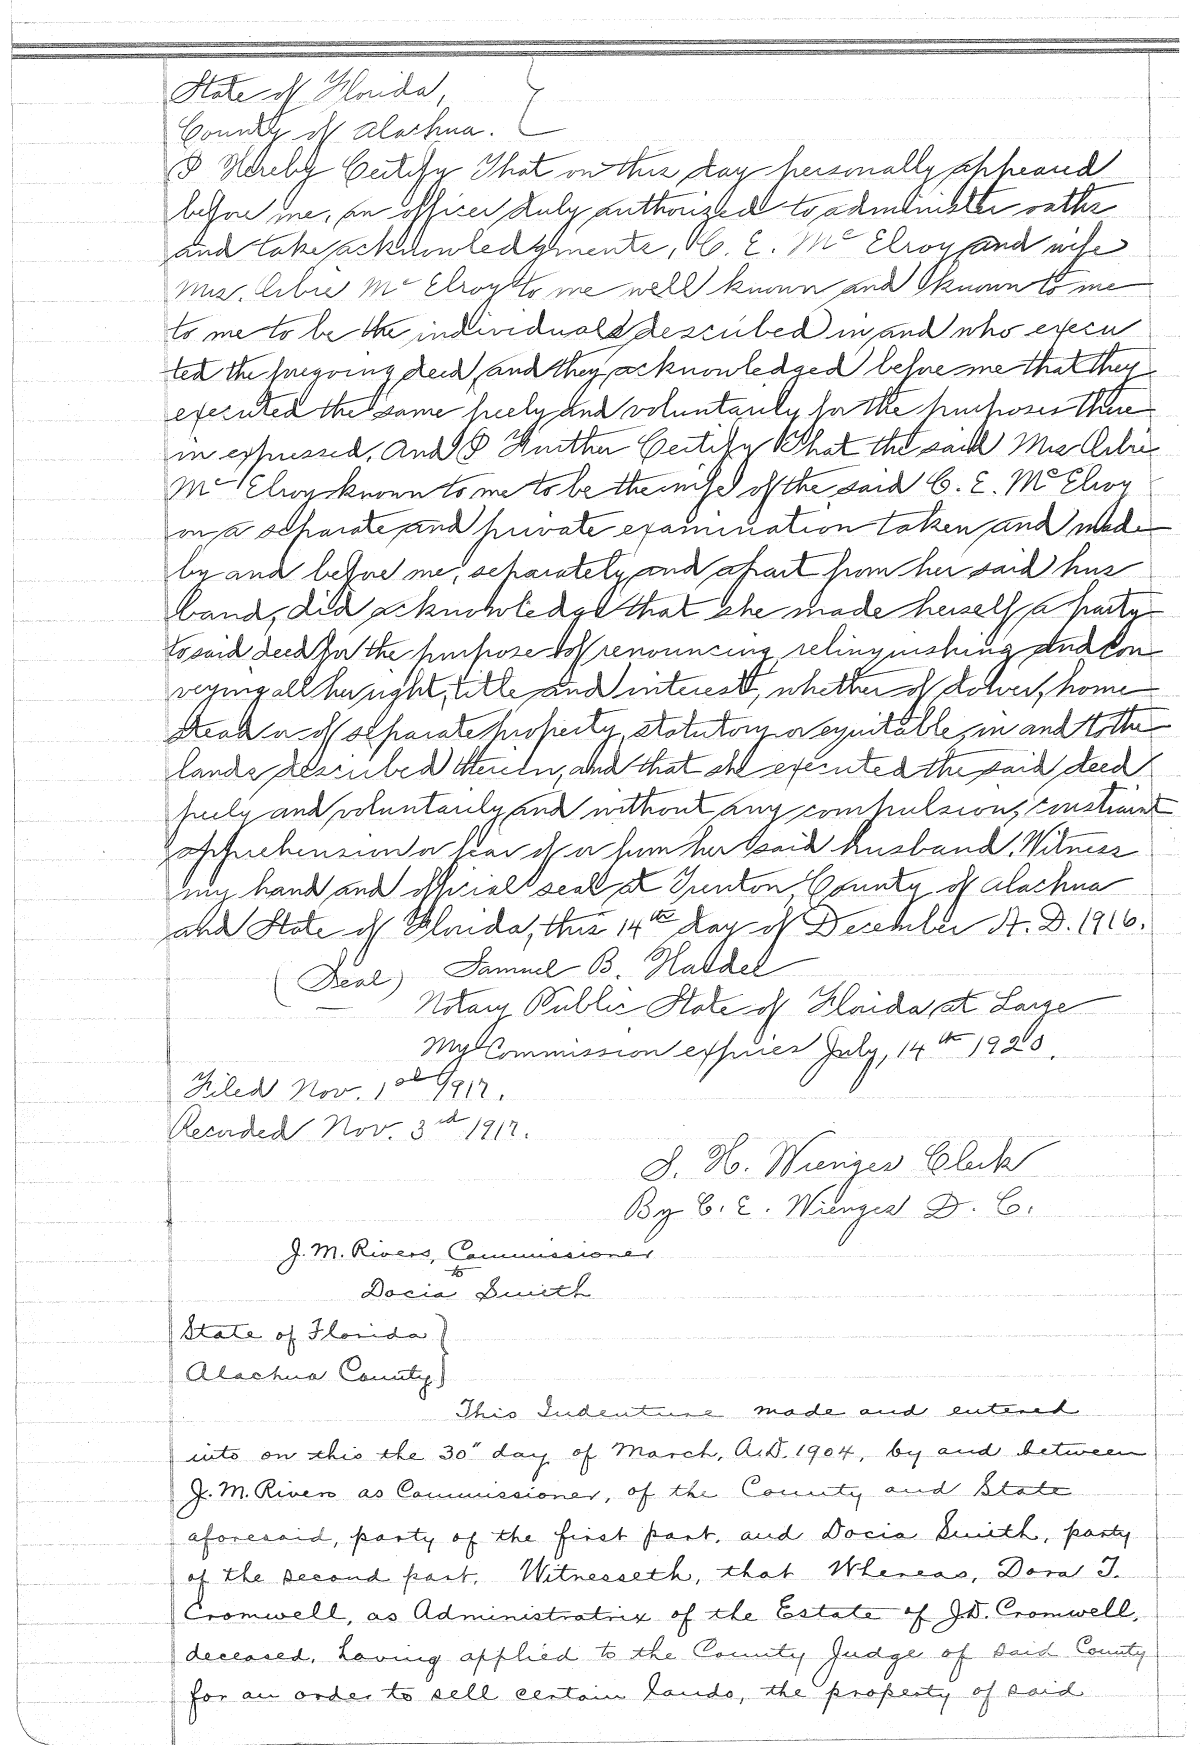 State of Florida,
County of Alachua.
I Hereby Certify That on this day personally appeared
before me, an officer duly authorized to administer oaths
and take acknowledgments, C. E. Mc Elroy and wife
Mrs. Arbie Mc Elroy to me well known and known to me
to me to be the individuals described in and who execu
ted the foregoing deed, and they acknowledged before me that they
executed the same freely and voluntarily for the purposes there
in expressed. And I Further Certify That the said Mrs Arbie
Mc Elroy known to me to be the wife of the said C. E. Mc Elroy
on a separate and private examination taken and made
by and before me, separately and apart from her said hus
band, did acknowledge that she made herself a party
to said deed for the purpose of renouncing, relinquishing and con
veying all her right, title and interest, whether of dower, home
stead or of separate property, statutory or equitable, in and to the
lands described therein, and that she executed the said deed
freely and voluntarily and without any compulsion, constraint
apprehension or fear of or from her said husband. Witness
my hand and official seal at Trenton, County of Alachua
and State of Florida, this 14th day of December A. D. 1916.
(Seal) Samuel B. Hardee
Notary Public State of Florida at Large
My Commission expires July, 14th 1920.
Filed Nov. 1st 1917.
Recorded Nov. 3rd 1917.
S. H. Wienges Clerk
By C. E. Wienges D. C.
J. M. Rivers, Commissioner
to
Docia Smith
State of Florida
Alachua County
This Indenture made and entered
into on this the 30" day of March, A.D. 1904, by and between
J. M. Rivers as Commissioner, of the County and State
aforesaid, party of the first part, and Docia Smith, party
of the second part. Witnesseth, that Whereas, Dora T.
Cromwell, as Administratrix of the Estate of J.D. Cromwell,
deceased, having applied to the County Judge of said County
for an order to sell certain lands, the property of said